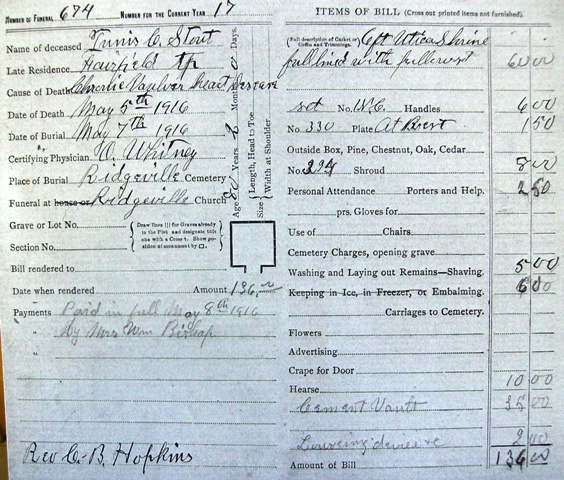 NUMBER OF FUNERAL 674 NUMBER FOR THE CURRENT YEAR 17
Name of deceased Tunis C. Stout
Late Residence Fairfield Tp
Cause of Death Chronic Valvular heart disease
Date of Death May 5th 1916
Date of Burial May 7th 1916
Certifying Physician O. Whitney
Place of Burial Ridgeville Cemetery
Funeral at house or Ridgeville Church
Age Years Months Days.
Size Length, Head to Toe
Width at Shoulder
Grave or Lot No.
Section No.
Draw lines ||| for Graves already
in the Plot and designate this
one with a Cross †. Show po-
sition of monument by □.
Bill rendered to
Date when rendered Amount 136.00
Payments Paid in full May 8th 1916
" By Mrs Wm Bishop
"
"
Rev C. B. Hopkins
ITEMS OF BILL (Cross out printed items not furnished).
(Full description of Casket or
Coffin and Trimmings. 6 ft Utica Shrine
full lined with 60 00
set No. Handles 6 00
No. 330 Plate At Rest 1 50
Outside Box, Pine, Chestnut, Oak, Cedar
No. 394 Shroud 8 00
Personal Attendance Porters and Help. 2 50
prs. Gloves for
Use of Chairs
Cemetery Charges, opening grave
Washing and Laying out Remains—Shaving. 5 00
Keeping in Ice, in Freezer, or Embalming. 6 00
Carriages to Cemetery.
Flowers
Advertising
Crape for Door
Hearse 10 00
Cement Vault 35 00
Lowering device 2 00
Amount of Bill 136 00